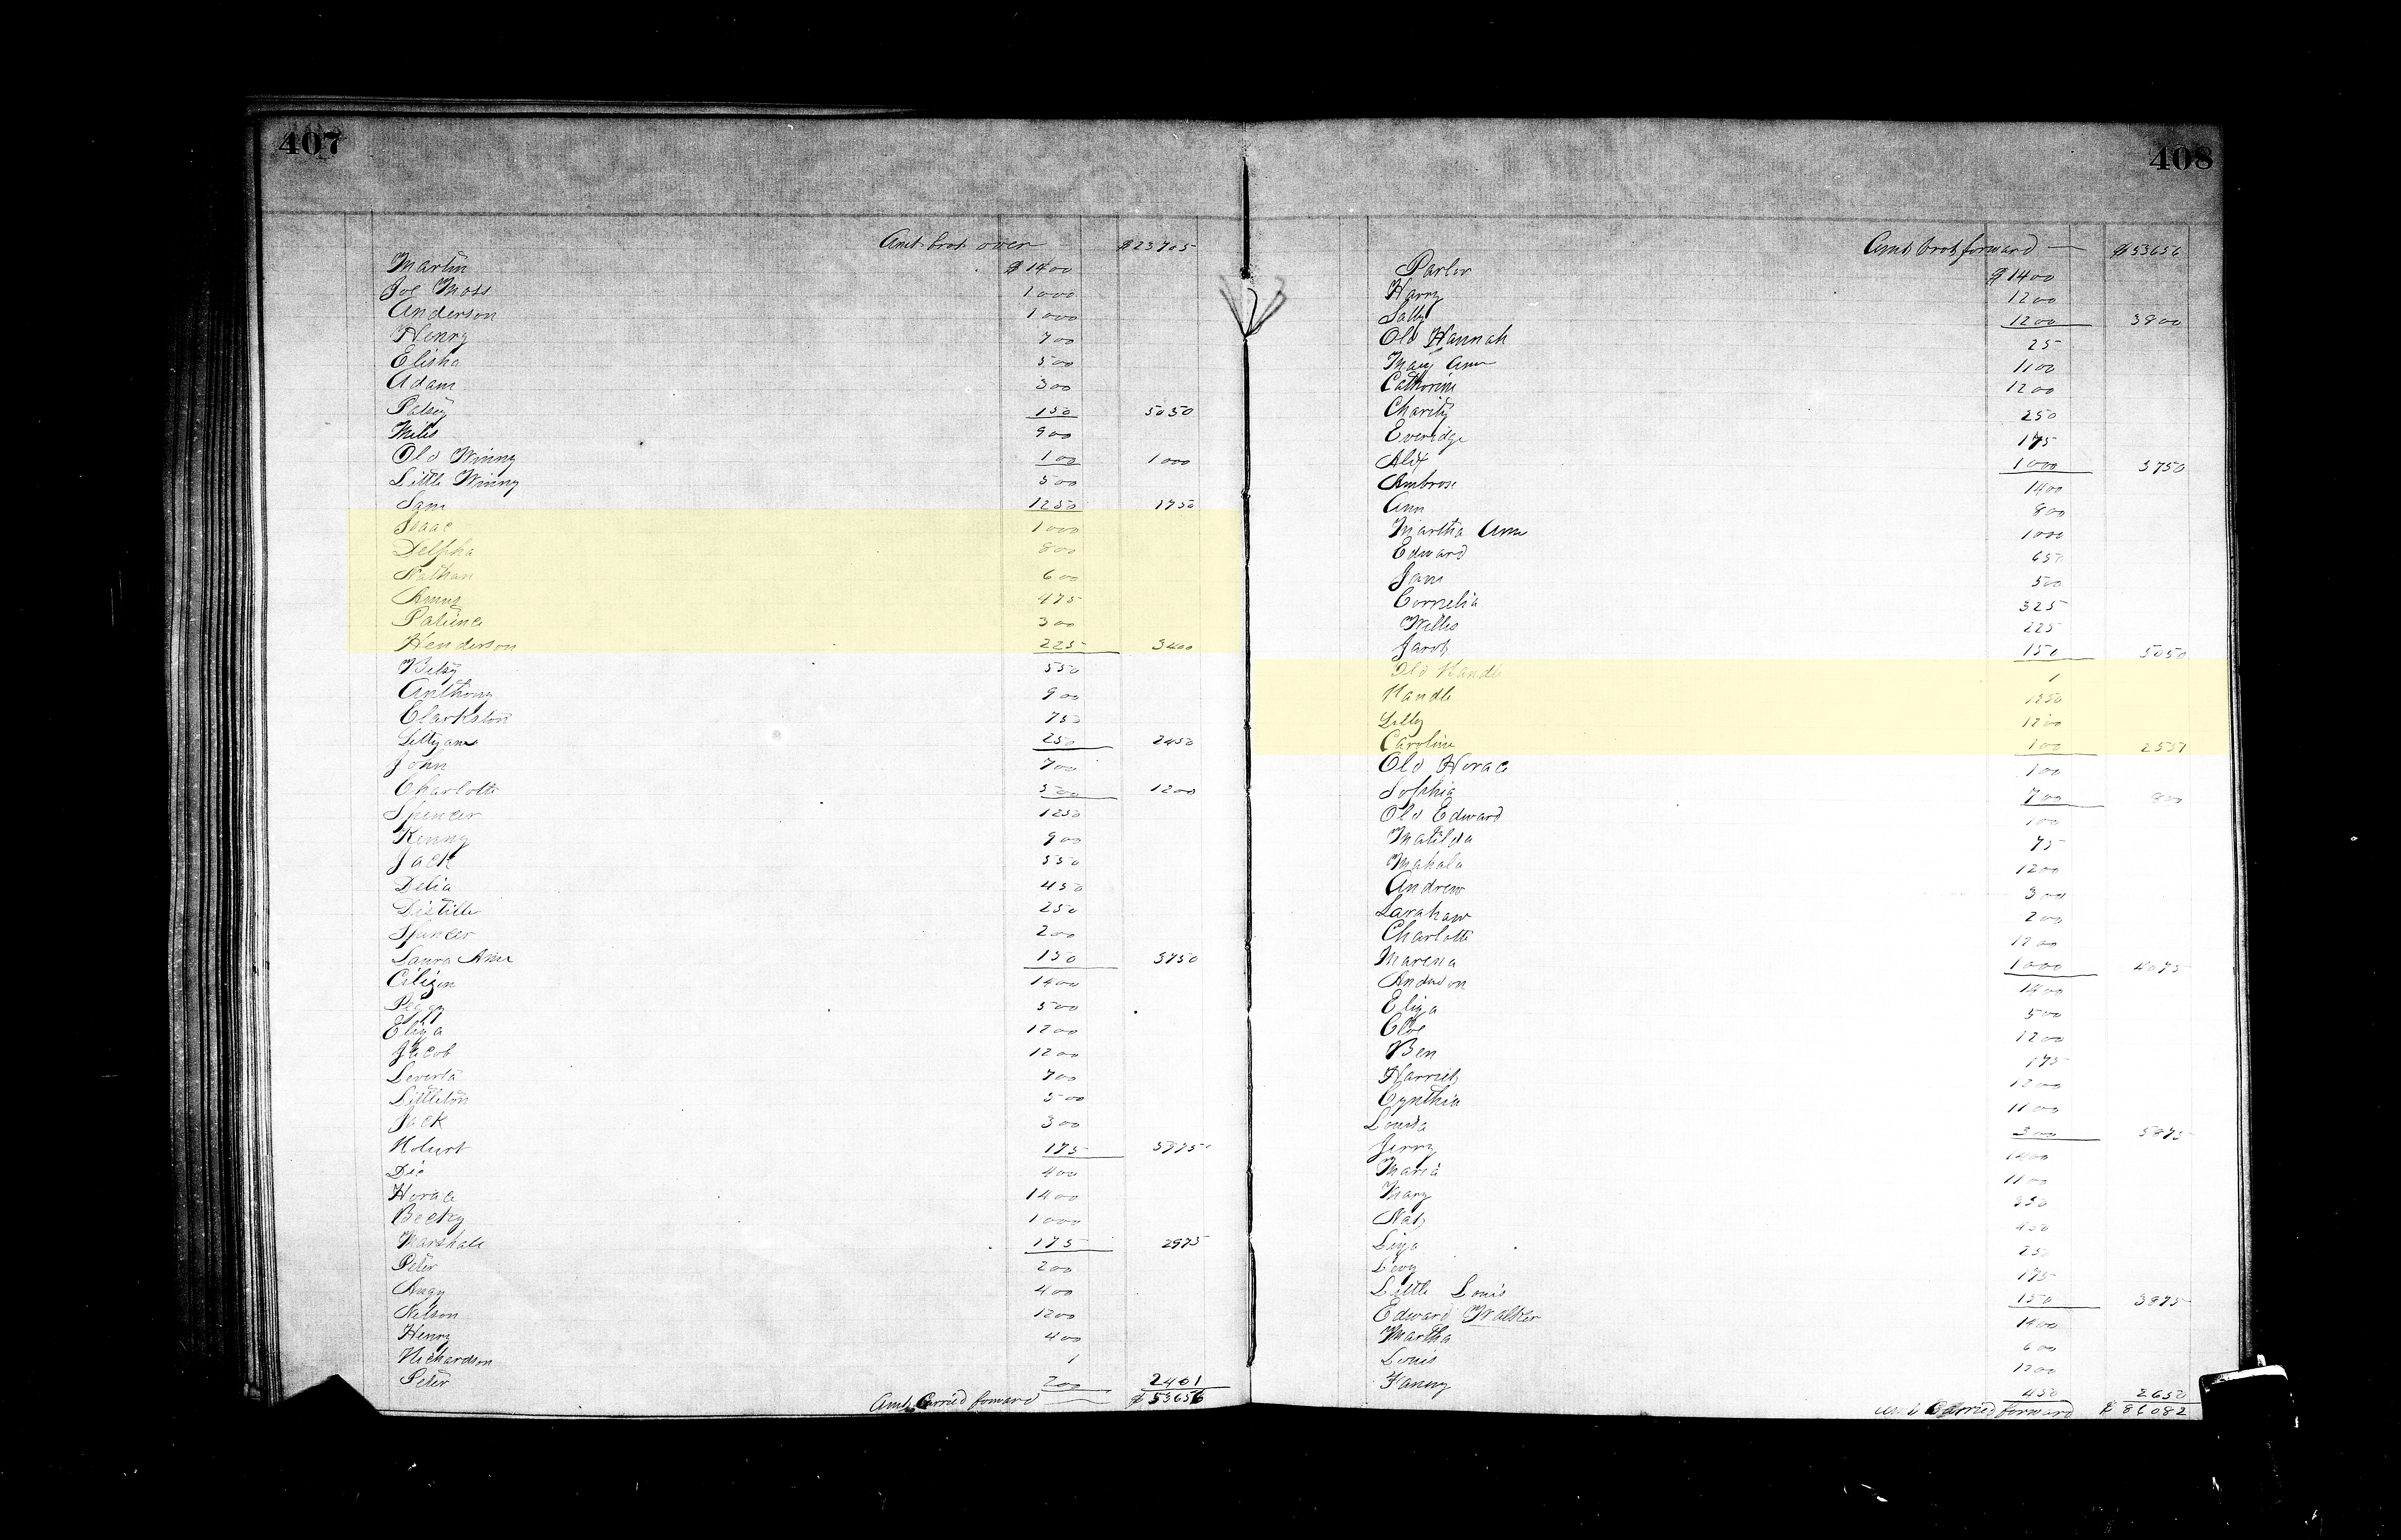 407
Amt. brot. over $23705
Martin $1400
Joe Moss 1000
Anderson 1000
Henry 700
Elisha 500
Adam 300
Patsey 150 5050
Miles 900
Old Winny 100 1000
Little Winny 500
Sam 1250 1750
Isaac 1000
Delpha 800
Nathan 600
475
Patience 300
Henderson 225 3400
Betsy 550
Anthony 900
Clarkston 750
Littyann 250 2450
John 700
Charlotte 500 1200
Spencer 1250
Kenny 900
Jack 550
Delia 450
250
Spencer 200
Laura Ann 150 3750
Citizen 1400
Peggy 500
Eliza 1200
Jacob 1200
700
Littleton 500
Jack 300
175 5975
400
Horace 1400
Becky 1000
Marshall 175 2975
Peter 200
400
Nelson 1200
Henry 400
Richardson 1
Peter 200 2401
Amt. Carried forward $53656
408
Amt brot forward $53656
Parker $1400
Harry 1200
Sally 1200 3800
Old Hannah 25
Mary Ann 1100
Catherine 1200
Charity 250
Everidge 175
Alex 1000 3750
Ambrose 1400
Ann 800
Martha Ann 1000
Edward 650
Jane 500
Cornelia 325
Willis 225
Jacob 150 5050
Old Randle 1
Randle 1250
Lilly 1200
Caroline 100 2551
Old Horace 100
Sophia 700 800
Old Edward 100
Matilda 75
Mahala 1200
Andrew 300
Sarahann 200
Charlotte 1200
Marena 1000 4075
Anderson 1400
Eliza 500
Cloe 1200
Ben 175
Harriet 1200
Cynthia 1100
Louisa 300 5875
Jerry 1400
Maria 1100
Mary 350
Nat 450
Liza 250
Levy 175
Little Louis 150 3875
Edward Walker 1400
Martha 600
Louis 1200
Fanny 450 2650
Amt Carried forward $86082